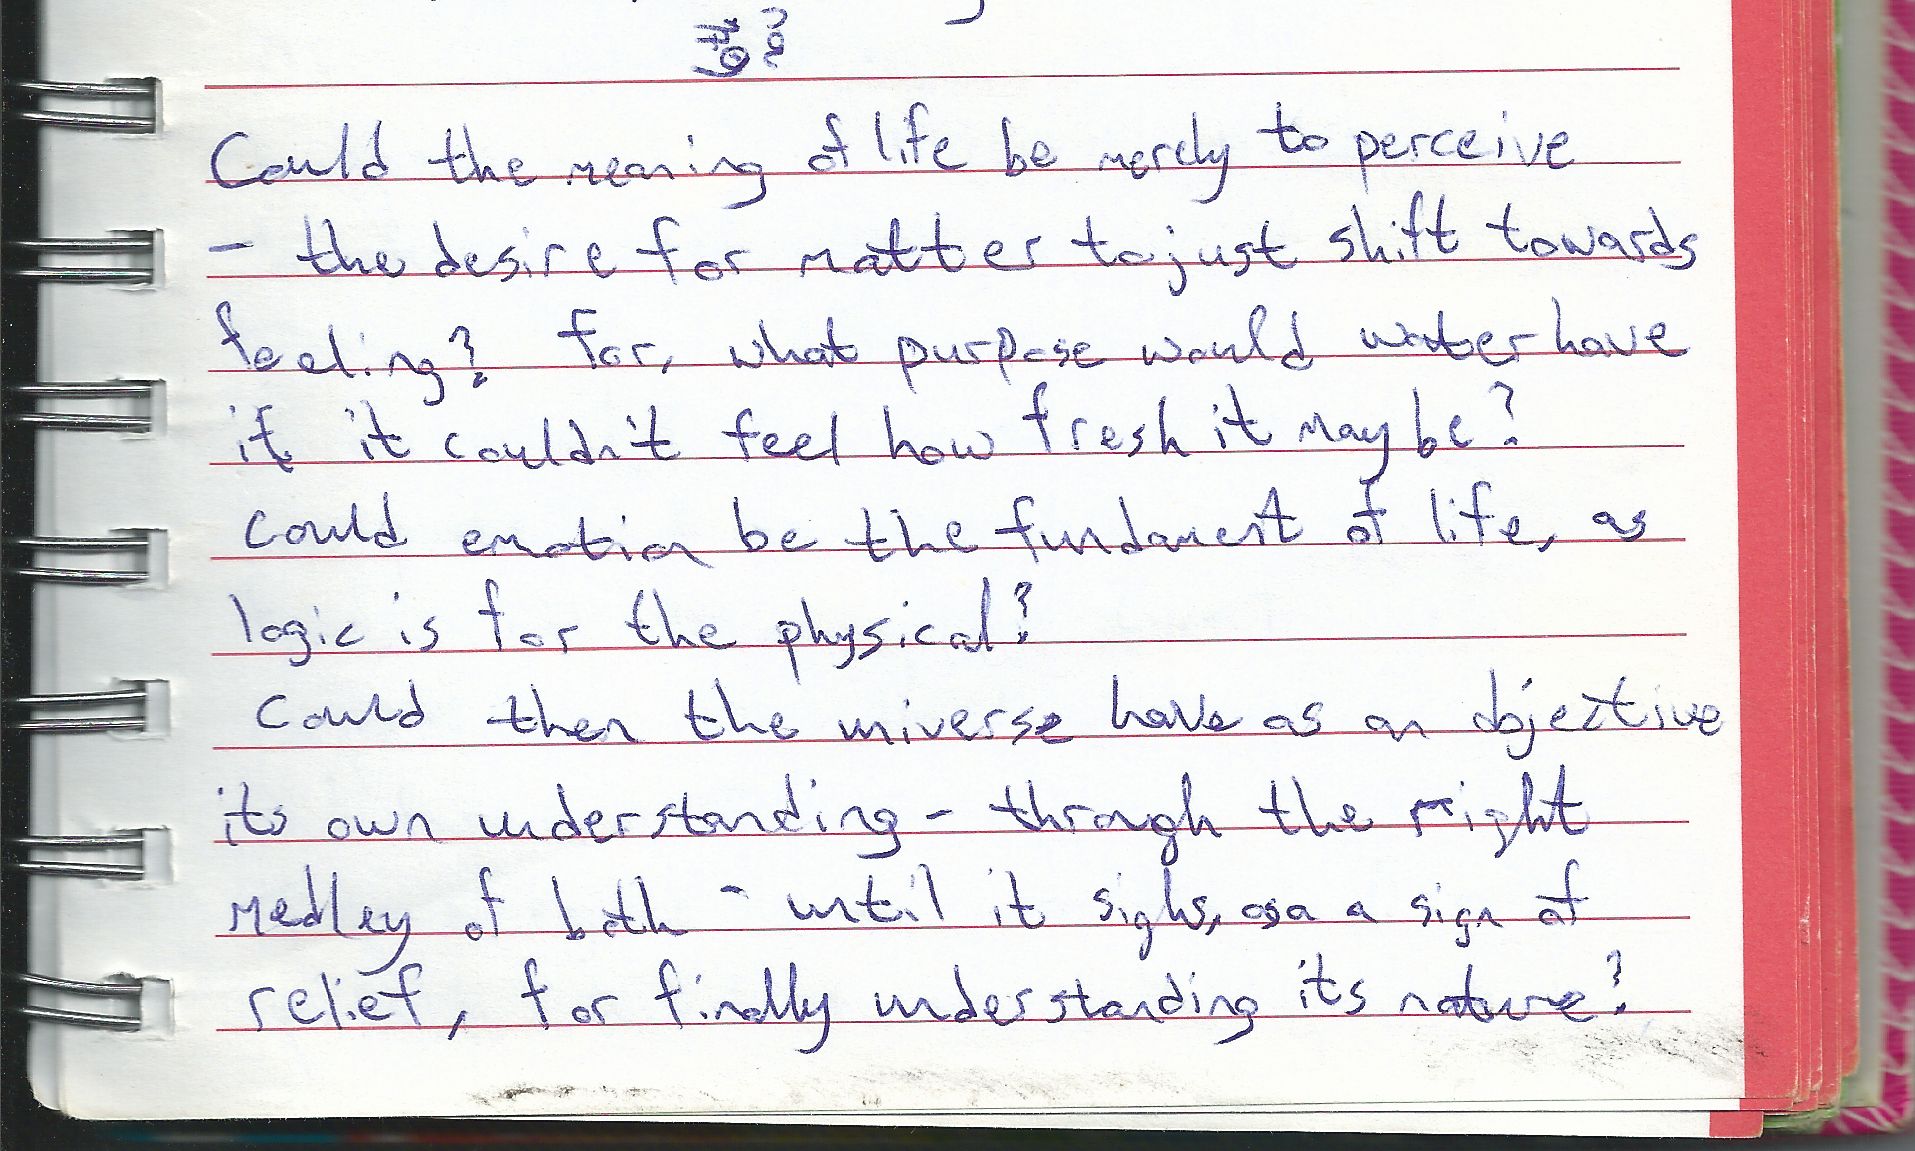 Could the meaning of life be merely to perceive
- the desire for matter to just shift towards
feeling? For, what purpose would water have
if it couldn't feel how fresh it may be?
Could emotion be the fundament of life, as
logic is for the physical?
Could then the universe have as an objective
its own understanding - through the right
medley of both - until it sighs, as a sign of
relief, for finally understanding its nature?